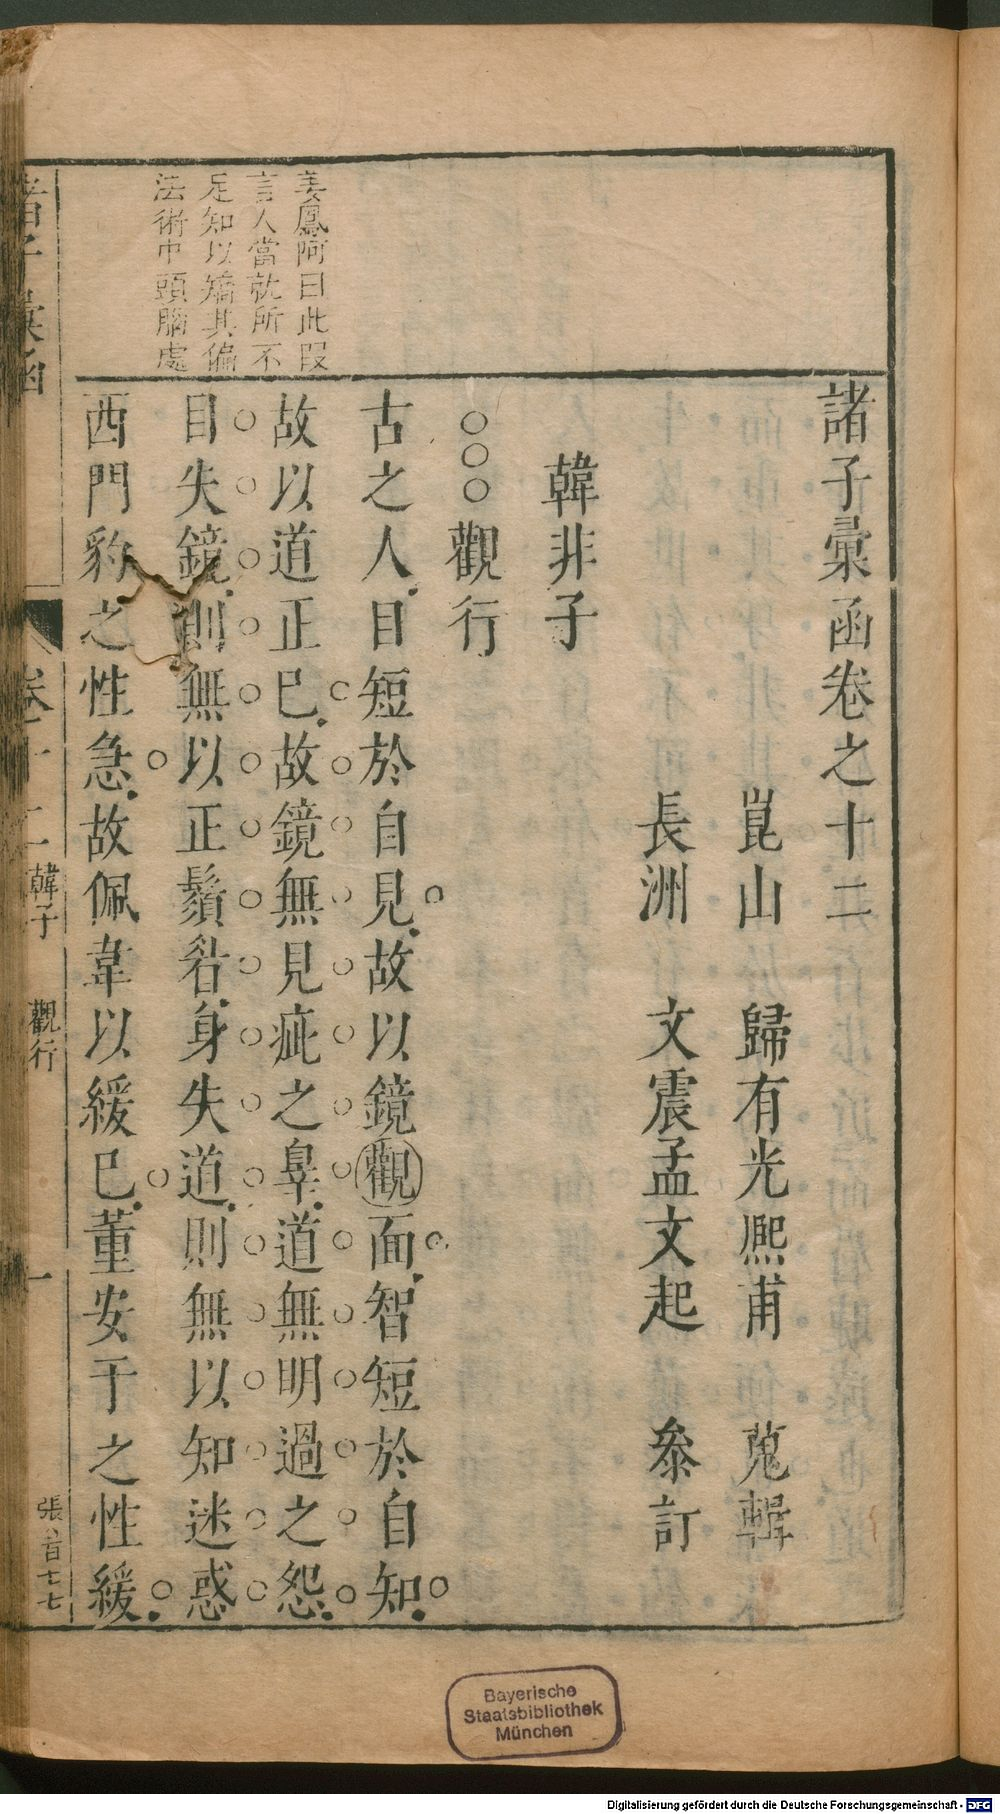 諸子彙函卷之十二
崑山 歸有光熈甫 蒐輯
長洲 文震孟文起 叅訂
韓非子
○○○觀行
古之人目短於自見故以鏡觀面智短於自知
故以道正已故鏡無見疵之辠道無明過之怨
目失鏡則無以正鬚眉身失道則無以知迷惑
西門豹之性急故佩韋以緩已董安于之性緩
姜鳳阿曰此叚
言人當就所不
足知以矯其偏
法術中頭腦處
諸子彙函
卷十二
韓子
觀行
一
張
七七
Bayerische
Staatsbibliothek
München
Digitalisierung gefördert durch die Deutsche Forschungsgemeinschaft - DFG